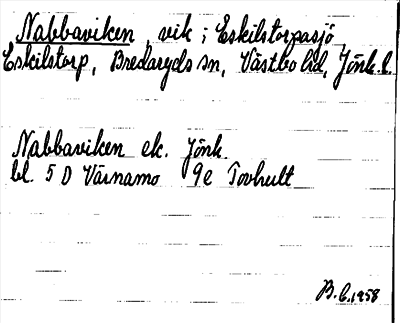 Nabbaviken, vik i Eskilstorpasjö,
Eskilstorp, Bredaryds sn, Västbo hd, Jönk. l.
Nabbaviken ek. Jönk.
bl. 5 D Värnamo 9e Tovhult
B. E. 1958